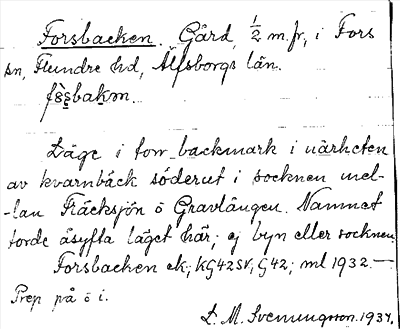 Forsbacken. Gård, 1/2 m.fr, i Fors
sn, Flundre hd, Älfsborgs län.
Läge i torr backmark i närheten
av kvarnbäck söderut i socknen mel-
-lan Fräcksjön o Gravlången. Namnet
torde åsyfta läget här, ej byn eller socknen.
Forsbacken ek; KG42SV, G42; ml 1932.—
Prep på o i.
L. M. Svenungsson. 1934.